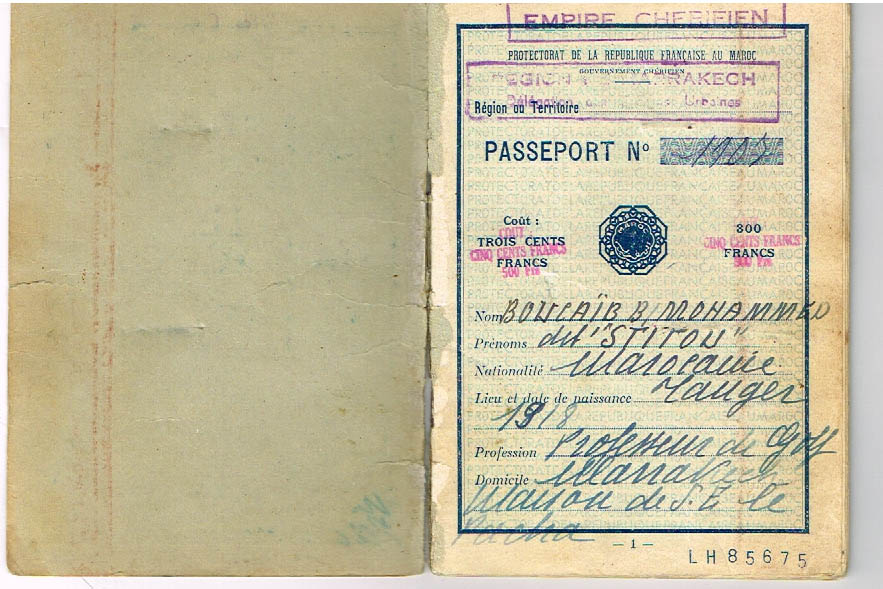 EMPIRE CHERIFIEN
PROTECTORAT DE LA REPUBLIQUE FRANÇAISE AU MAROC
GOUVERNEMENT CHÉRIFIEN
REGION MARRAKECH
Région ou Territoire
Urbaines
PASSEPORT Nº 1105
Coût :
TROIS CENTS
FRANCS
COUT :
CINQ CENTS FRANCS
500 Frs
MAROC
300
FRANCS
CINQ CENTS FRANCS
500 Frs
Nom BOUCAÏB B. MOHAMMED
Prénoms dit "STITOU"
Nationalité Marocaine
Lieu et date de naissance Tanger
1918
Profession Professeur de Golf
Domicile Marrakech
Maison de S.E. le
Pacha
– 1 –
LH85675